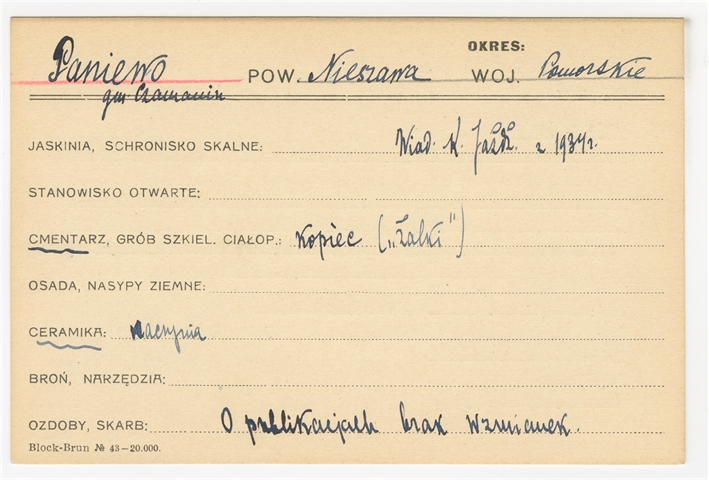 OKRES:
Paniewo POW. Nieszawa WOJ. Pomorskie
gm Czamanin
JASKINIA, SCHRONISKO SKALNE: Wiad. K. Jażdż. z 1934r.
STANOWISKO OTWARTE:
CMENTARZ, GRÓB SZKIEL. CIAŁOP.: Kopiec („Żalki")
OSADA, NASYPY ZIEMNE:
CERAMIKA: naczynia
BROŃ, NARZĘDZIA:
OZDOBY, SKARB: O publikacjach brak wzmianek.
Block-Brun № 43–20.000.